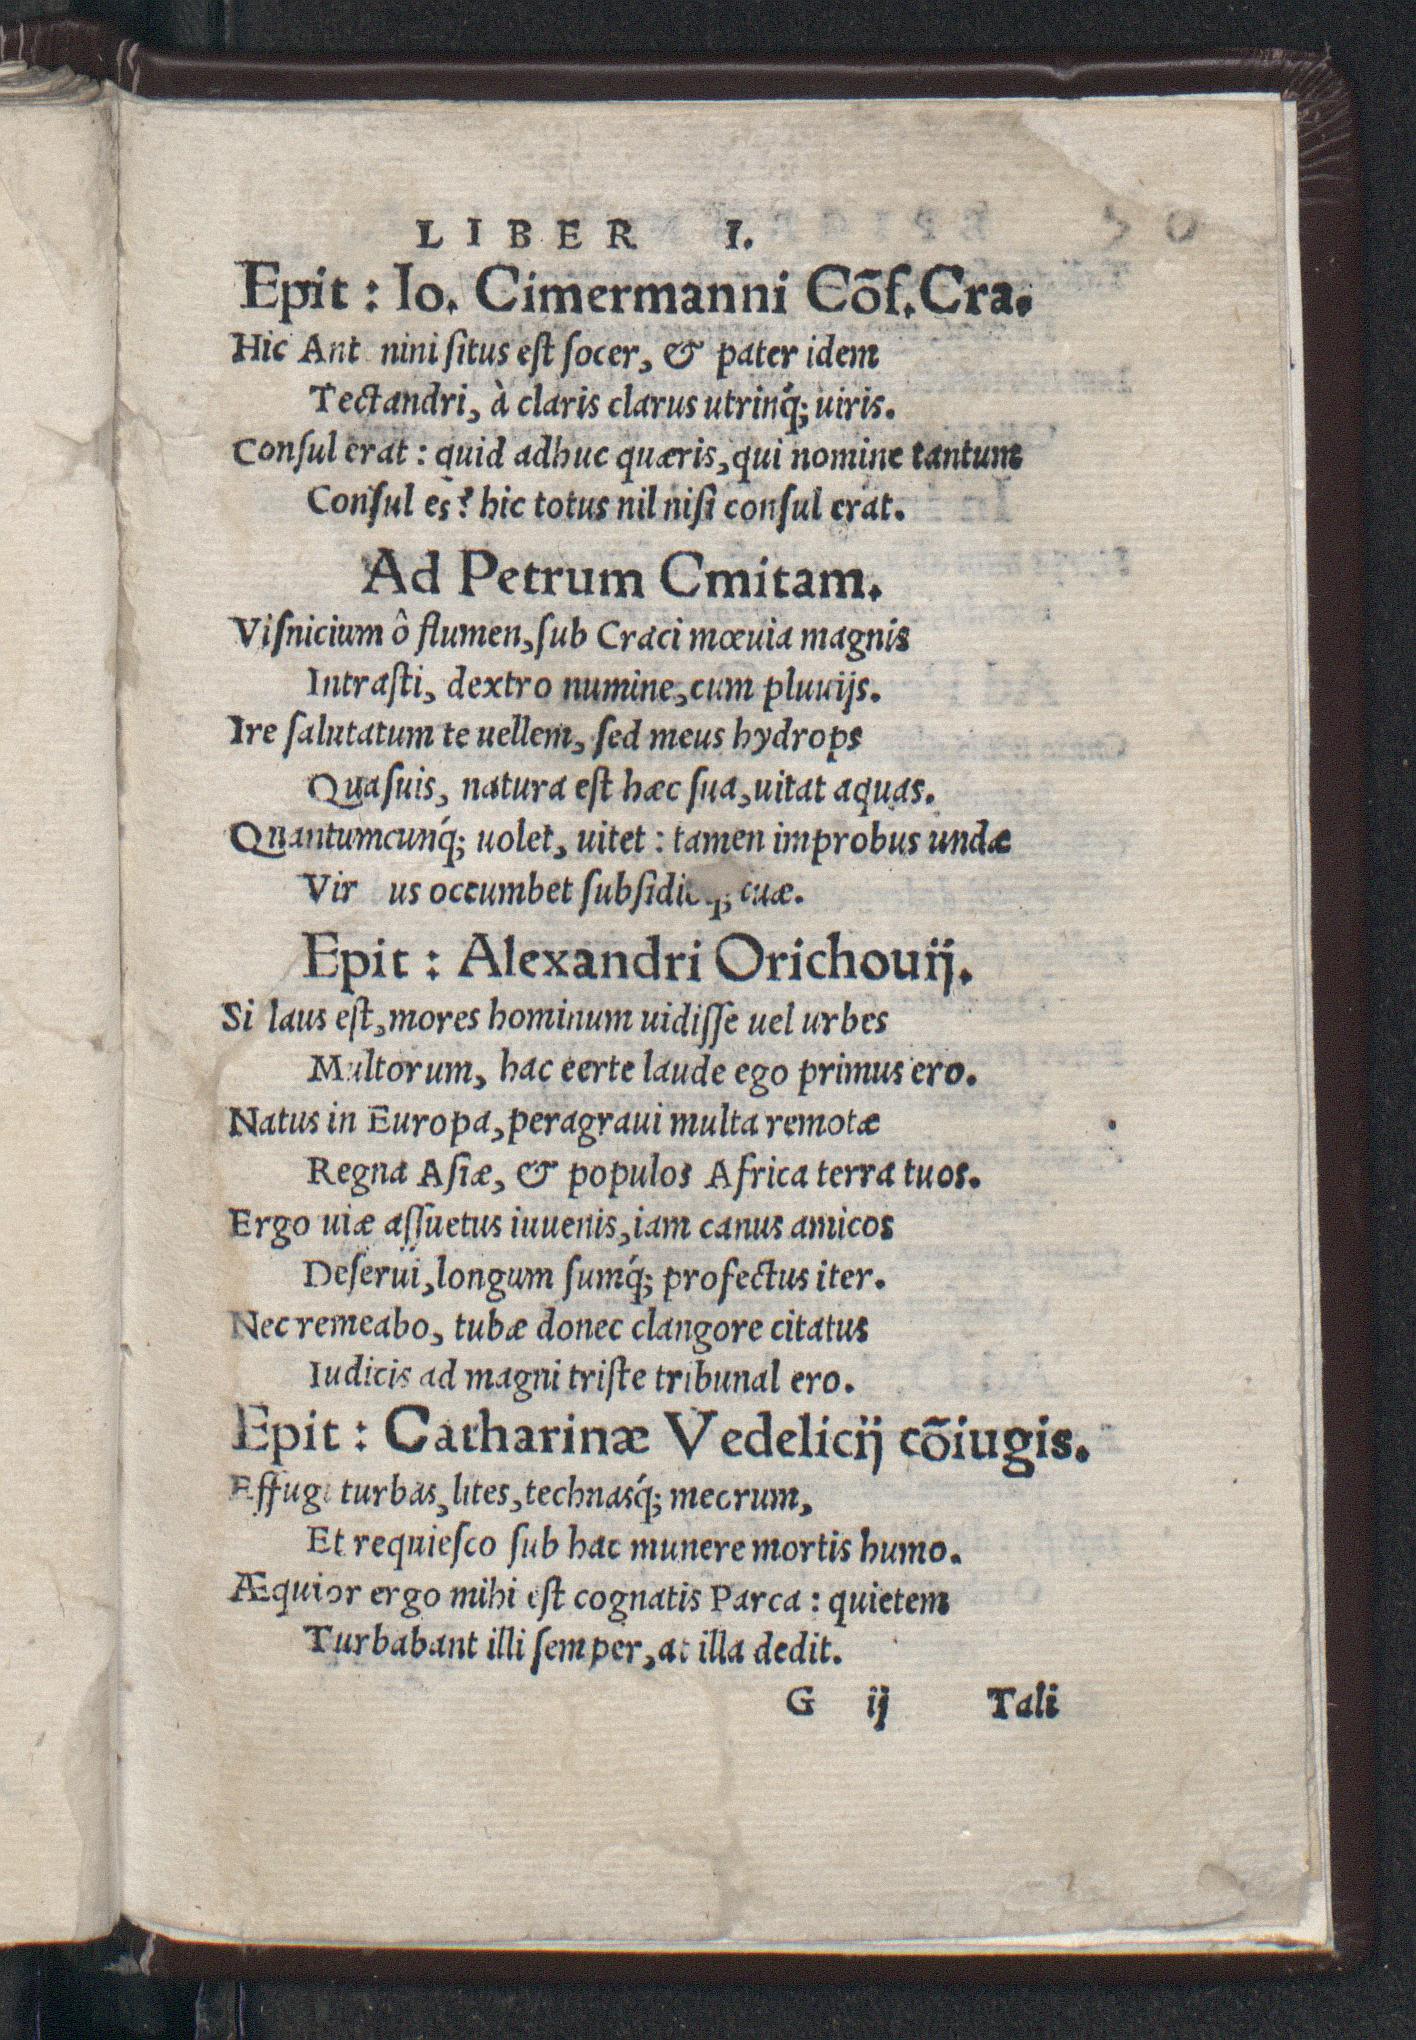 LIBER I.
Epit : Io. Cimermanni Cõſ. Cra.
Hic Ant nini ſitus eſt ſocer, & pater idem
Tectandri, à claris clarus utrinq́; uiris.
Conſul erat : quid adhuc quæris, qui nomine tantum
Conſul es? hic totus nil niſi conſul erat.
Ad Petrum Cmitam.
Viſnicium ô flumen, ſub Craci mœuia magnis
Intraſti, dextro numine, cum pluuijs.
Ire ſalutatum te uellem, ſed meus hydrops
Quaſuis, natura eſt hæc ſua, uitat aquas.
Quantumcunq́; uolet, uitet : tamen improbus undæ
Vir us occumbet tuæ.
Epit : Alexandri Orichouij.
Si laus eſt, mores hominum uidiſſe uel urbes
Multorum, hac eerte laude ego primus ero.
Natus in Europa, peragraui multa remotæ
Regna Aſiæ, & populos Africa terra tuos.
Ergo uiæ aſſuetus iuuenis, iam canus amicos
Deſerui, longum ſumq́; profectus iter.
Nec remeabo, tubæ donec clangore citatus
Iudicis ad magni triſte tribunal ero.
Epit : Catharinæ Vedelicij cõiugis.
Effugi turbas, lites, technasq́; meorum,
Et requieſco ſub hac munere mortis humo.
Æquior ergo mihi eſt cognatis Parca : quietem
Turbabant illi ſemper, at illa dedit.
G ij Tali